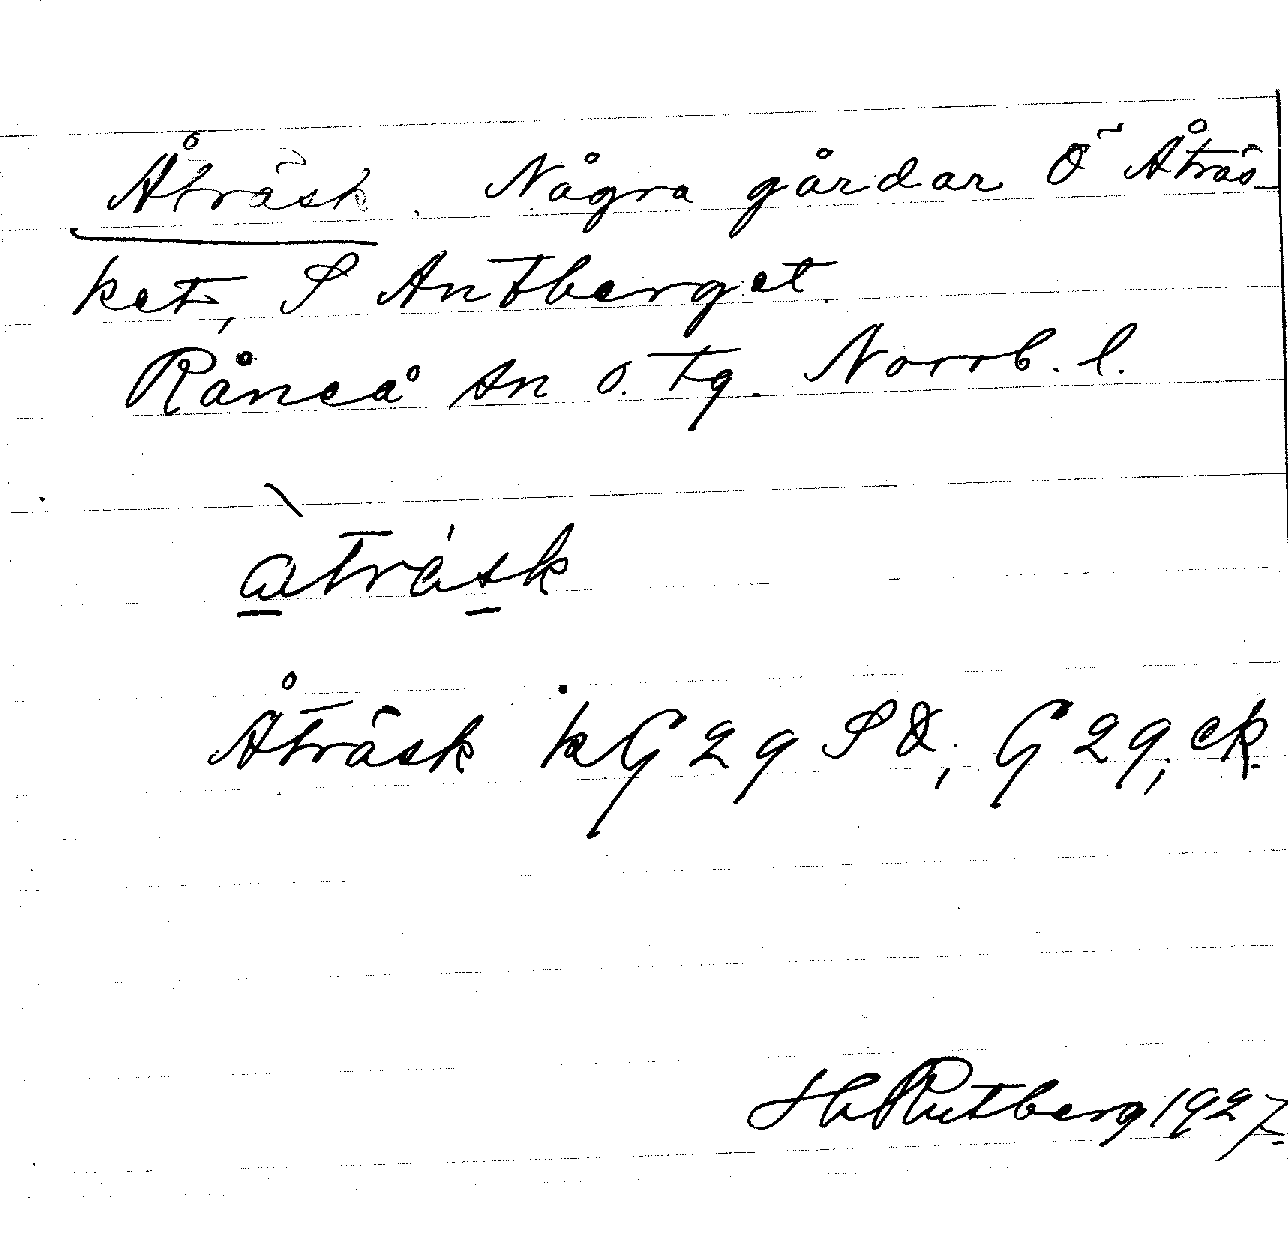 Åträsk. Några gårdar Ö Åträs
ket, S Antberget
Råneå sn o. tg. Norrb. l.
åträsk
Åträsk kG29 SO, G29, ek.
H Rutberg 1927